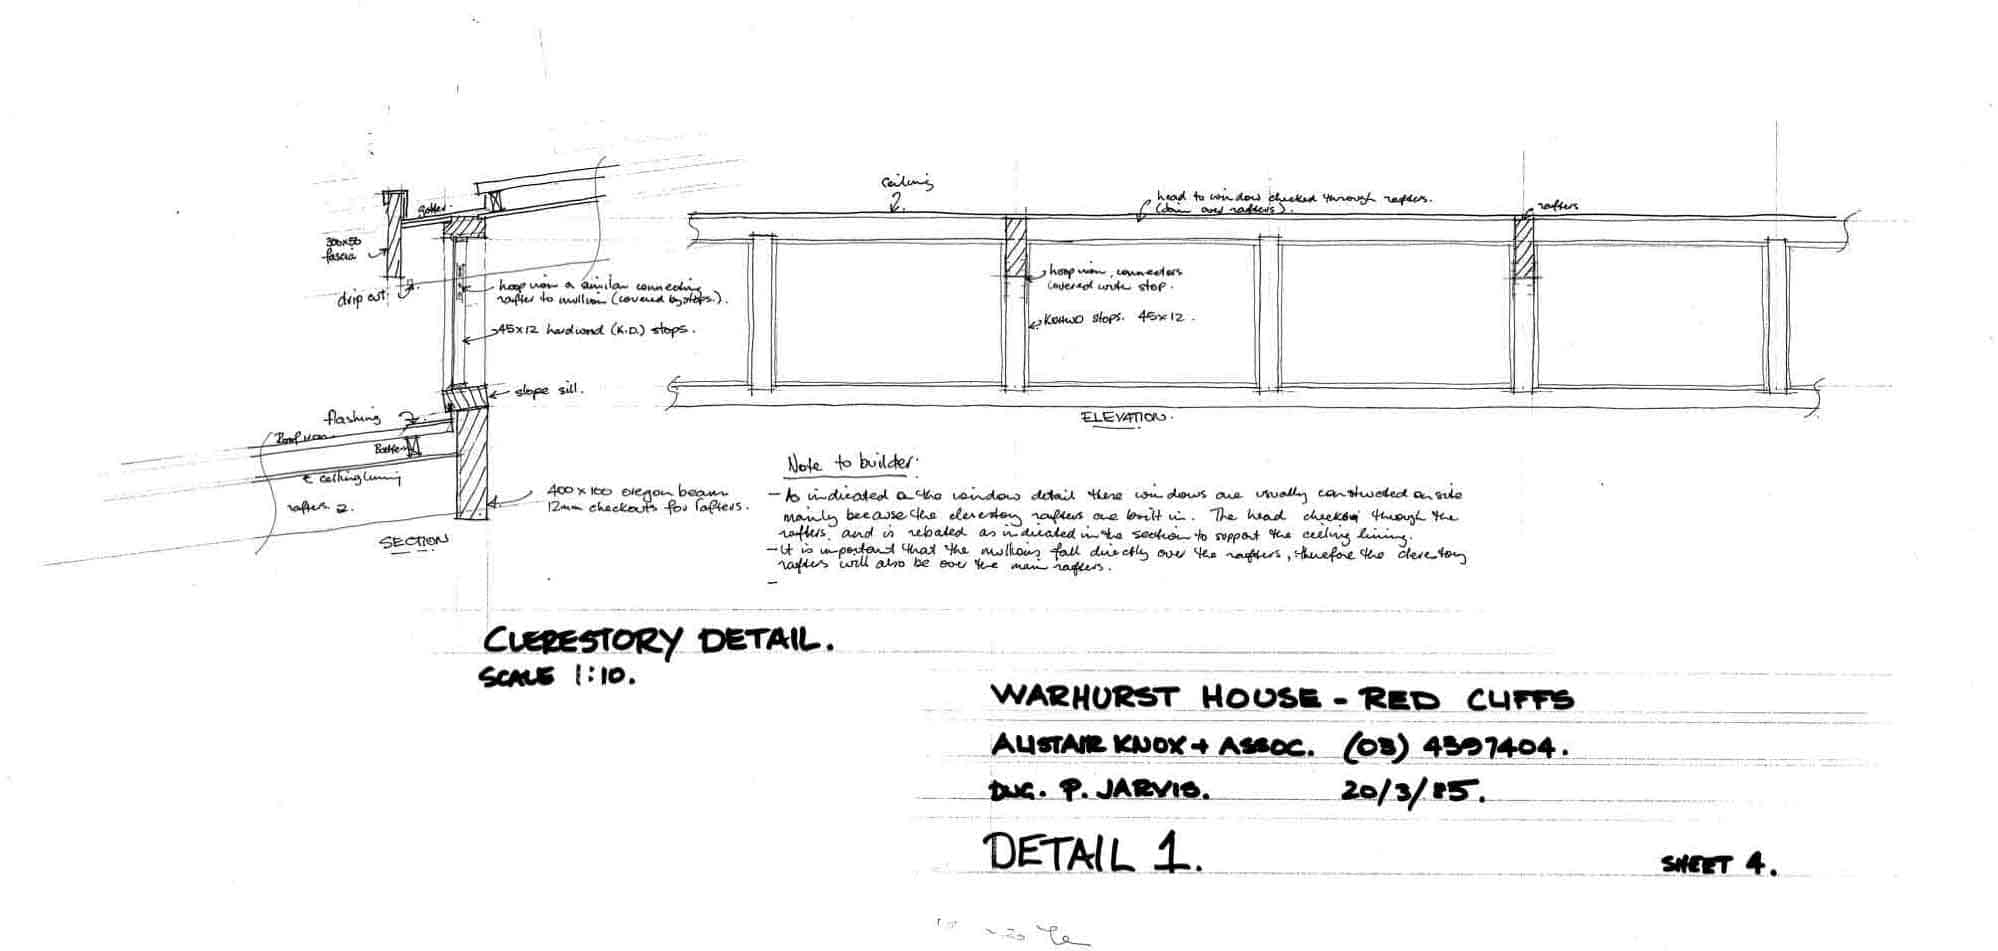 Gutter.
300x50
fascia
drip cut
hoop iron or similar connecting
rafter to mullion (covered by stops.).
45x12 hardwood (K.D.) stops.
slope sill.
flashing
Roof iron
Batten
ceiling lining
rafters.
400 x 100 oregon beam
12mm checkouts for rafters.
SECTION
ceiling
head to window checked through rafters.
rafters
hoop iron connectors
covered with stop.
KDHWD stops. 45x12.
ELEVATION.
Note to builder:
- As indicated on the window detail these windows are usually constructed on site
mainly because the clerestory rafters are built in. The head checks through the
rafters, and is rebated as indicated in the section to support the ceiling lining.
- It is important that the mullions fall directly over the rafters, therefore the clerestory
rafters will also be over the main rafters.
-
CLERESTORY DETAIL.
SCALE 1:10.
WARHURST HOUSE - RED CLIFFS
ALISTAIR KNOX + ASSOC. (03) 4397404.
DWG. P. JARVIS. 20/3/85.
DETAIL 1.
SHEET 4.